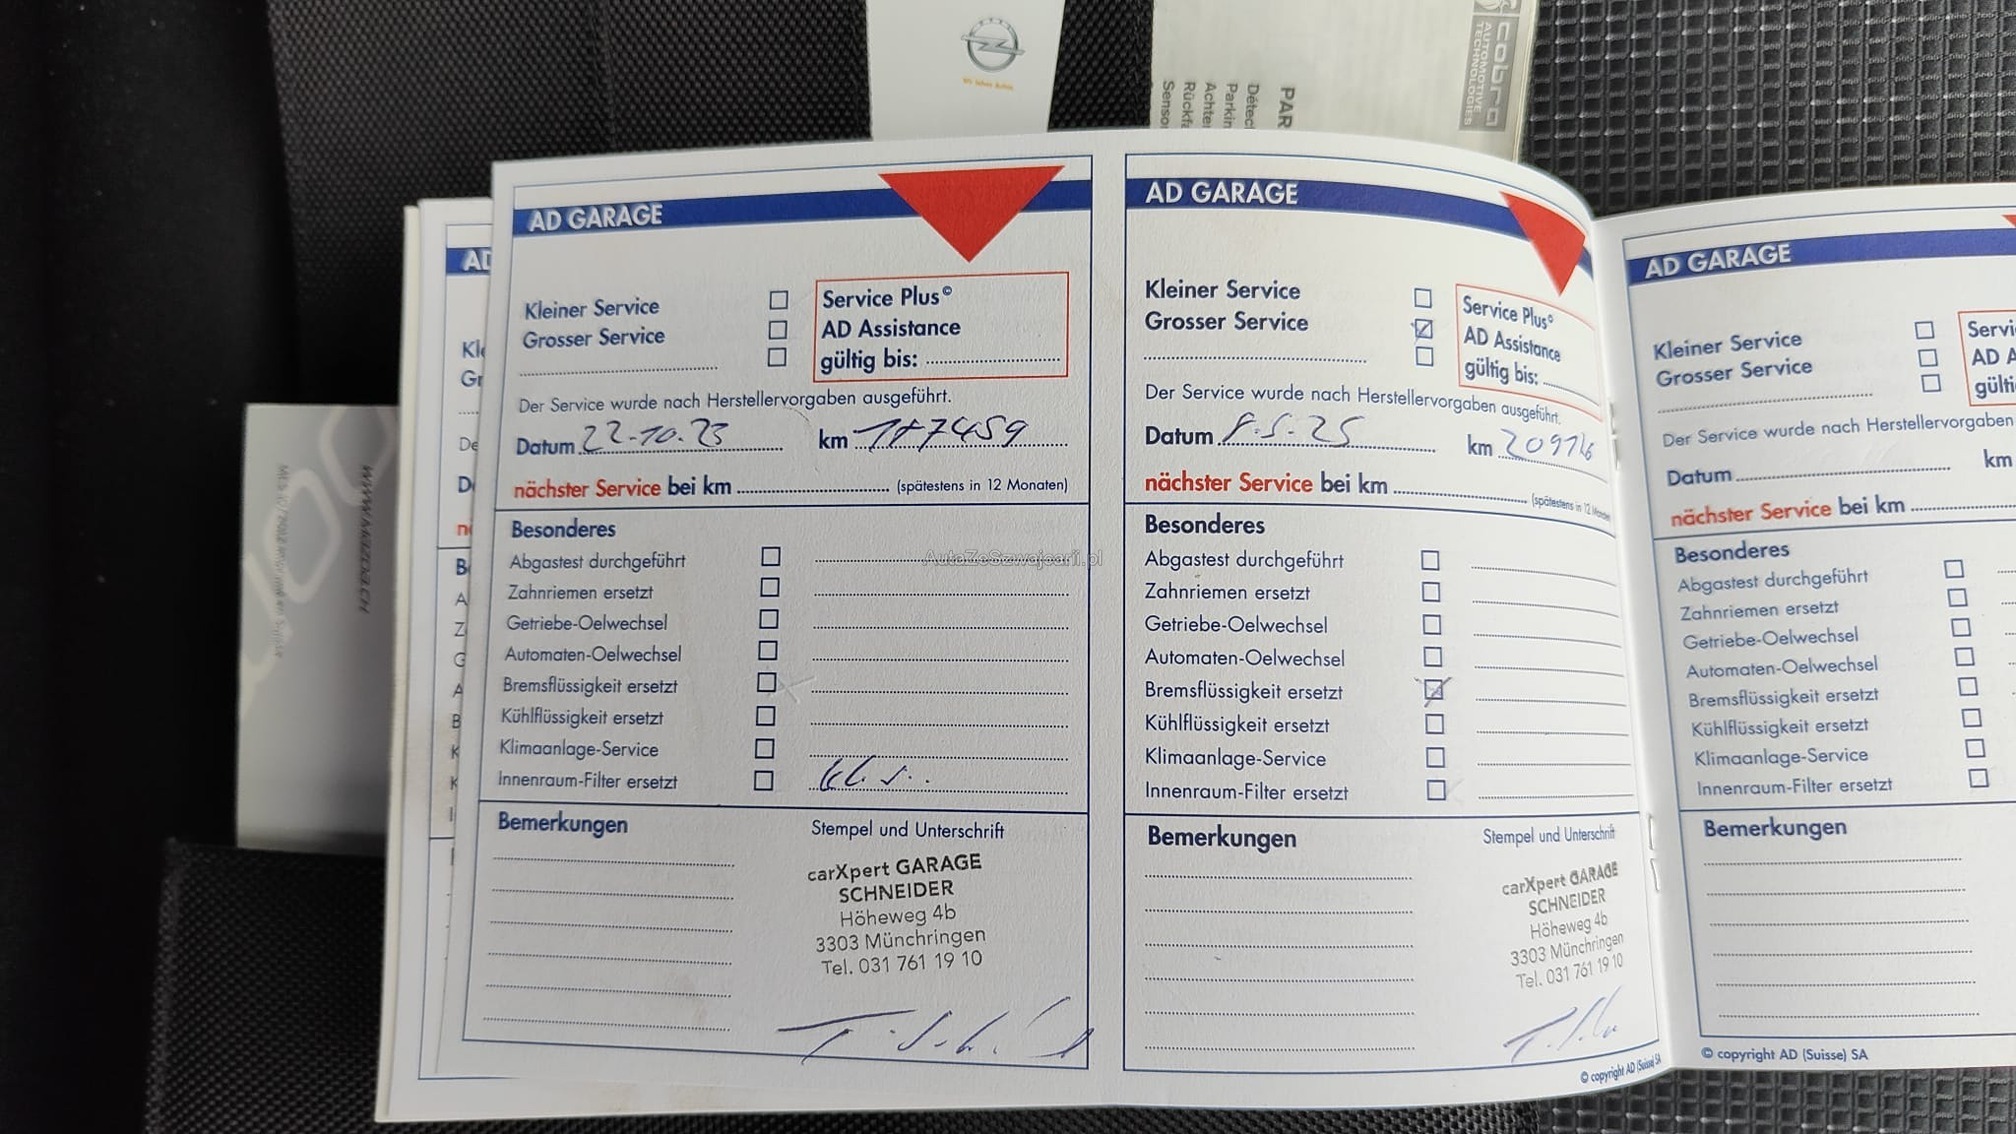 cobra
AUTOMOTIVE
TECHNOLOGIES
PAR
Détec
Parkin
Achte
Rückfa
Senso
WWW.MAZOO.CH
AD GARAGE
Kleiner Service
Grosser Service
Service Plus©
AD Assistance
gültig bis:
Der Service wurde nach Herstellervorgaben ausgeführt.
Datum 22-10.23 km 187459
nächster Service bei km (spätestens in 12 Monaten)
Besonderes
Abgastest durchgeführt
Zahnriemen ersetzt
Getriebe-Oelwechsel
Automaten-Oelwechsel
Bremsflüssigkeit ersetzt
Kühlflüssigkeit ersetzt
Klimaanlage-Service
Innenraum-Filter ersetzt
Bemerkungen
Stempel und Unterschrift
carXpert GARAGE
SCHNEIDER
Höheweg 4b
3303 Münchringen
Tel. 031 761 19 10
AutaZeSzwajcarii.pl
AD GARAGE
Kleiner Service
Grosser Service
Service Plus©
AD Assistance
gültig bis:
Der Service wurde nach Herstellervorgaben ausgeführt.
Datum 8.5.25 km 209716
nächster Service bei km (spätestens in 12 Monaten
Besonderes
Abgastest durchgeführt
Zahnriemen ersetzt
Getriebe-Oelwechsel
Automaten-Oelwechsel
Bremsflüssigkeit ersetzt
Kühlflüssigkeit ersetzt
Klimaanlage-Service
Innenraum-Filter ersetzt
Bemerkungen
Stempel und Unterschrift
carXpert GARAGE
SCHNEIDER
Höheweg 4b
3303 Münchringen
Tel. 031 761 19 10
© copyright AD (Suisse) SA
AD GARAGE
Kleiner Service
Grosser Service
Servi
AD A
gülti
Der Service wurde nach Herstellervorgaben
Datum km
nächster Service bei km
Besonderes
Abgastest durchgeführt
Zahnriemen ersetzt
Getriebe-Oelwechsel
Automaten-Oelwechsel
Bremsflüssigkeit ersetzt
Kühlflüssigkeit ersetzt
Klimaanlage-Service
Innenraum-Filter ersetzt
Bemerkungen
© copyright AD (Suisse) SA